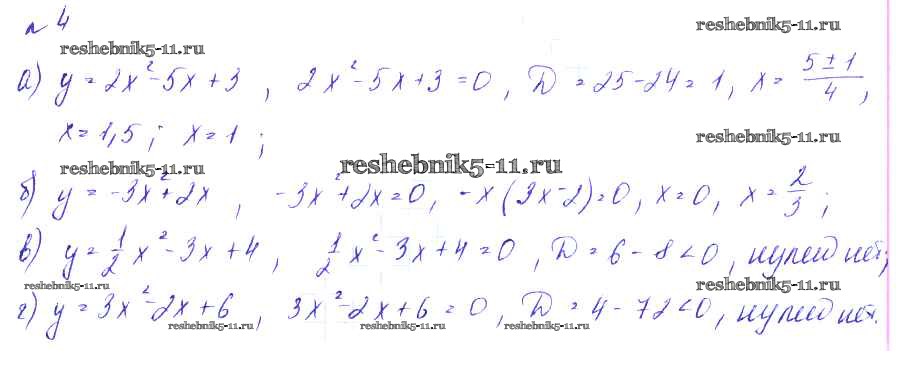 № 4
reshebnik5-11.ru
reshebnik5-11.ru
а) y = 2x² - 5x + 3, 2x² - 5x + 3 = 0, D = 25 - 24 = 1, x = (5 ± 1)/4,
x = 1,5; x = 1;
reshebnik5-11.ru
reshebnik5-11.ru
reshebnik5-11.ru
б) y = -3x² + 2x, -3x² + 2x = 0, -x(3x - 2) = 0, x = 0, x = 2/3;
в) y = 1/2 x² - 3x + 4, 1/2 x² - 3x + 4 = 0, D = 6 - 8 < 0, нулей нет;
reshebnik5-11.ru
reshebnik5-11.ru
reshebnik5-11.ru
г) y = 3x² - 2x + 6, 3x² - 2x + 6 = 0, D = 4 - 72 < 0, нулей нет.
reshebnik5-11.ru
reshebnik5-11.ru
reshebnik5-11.ru